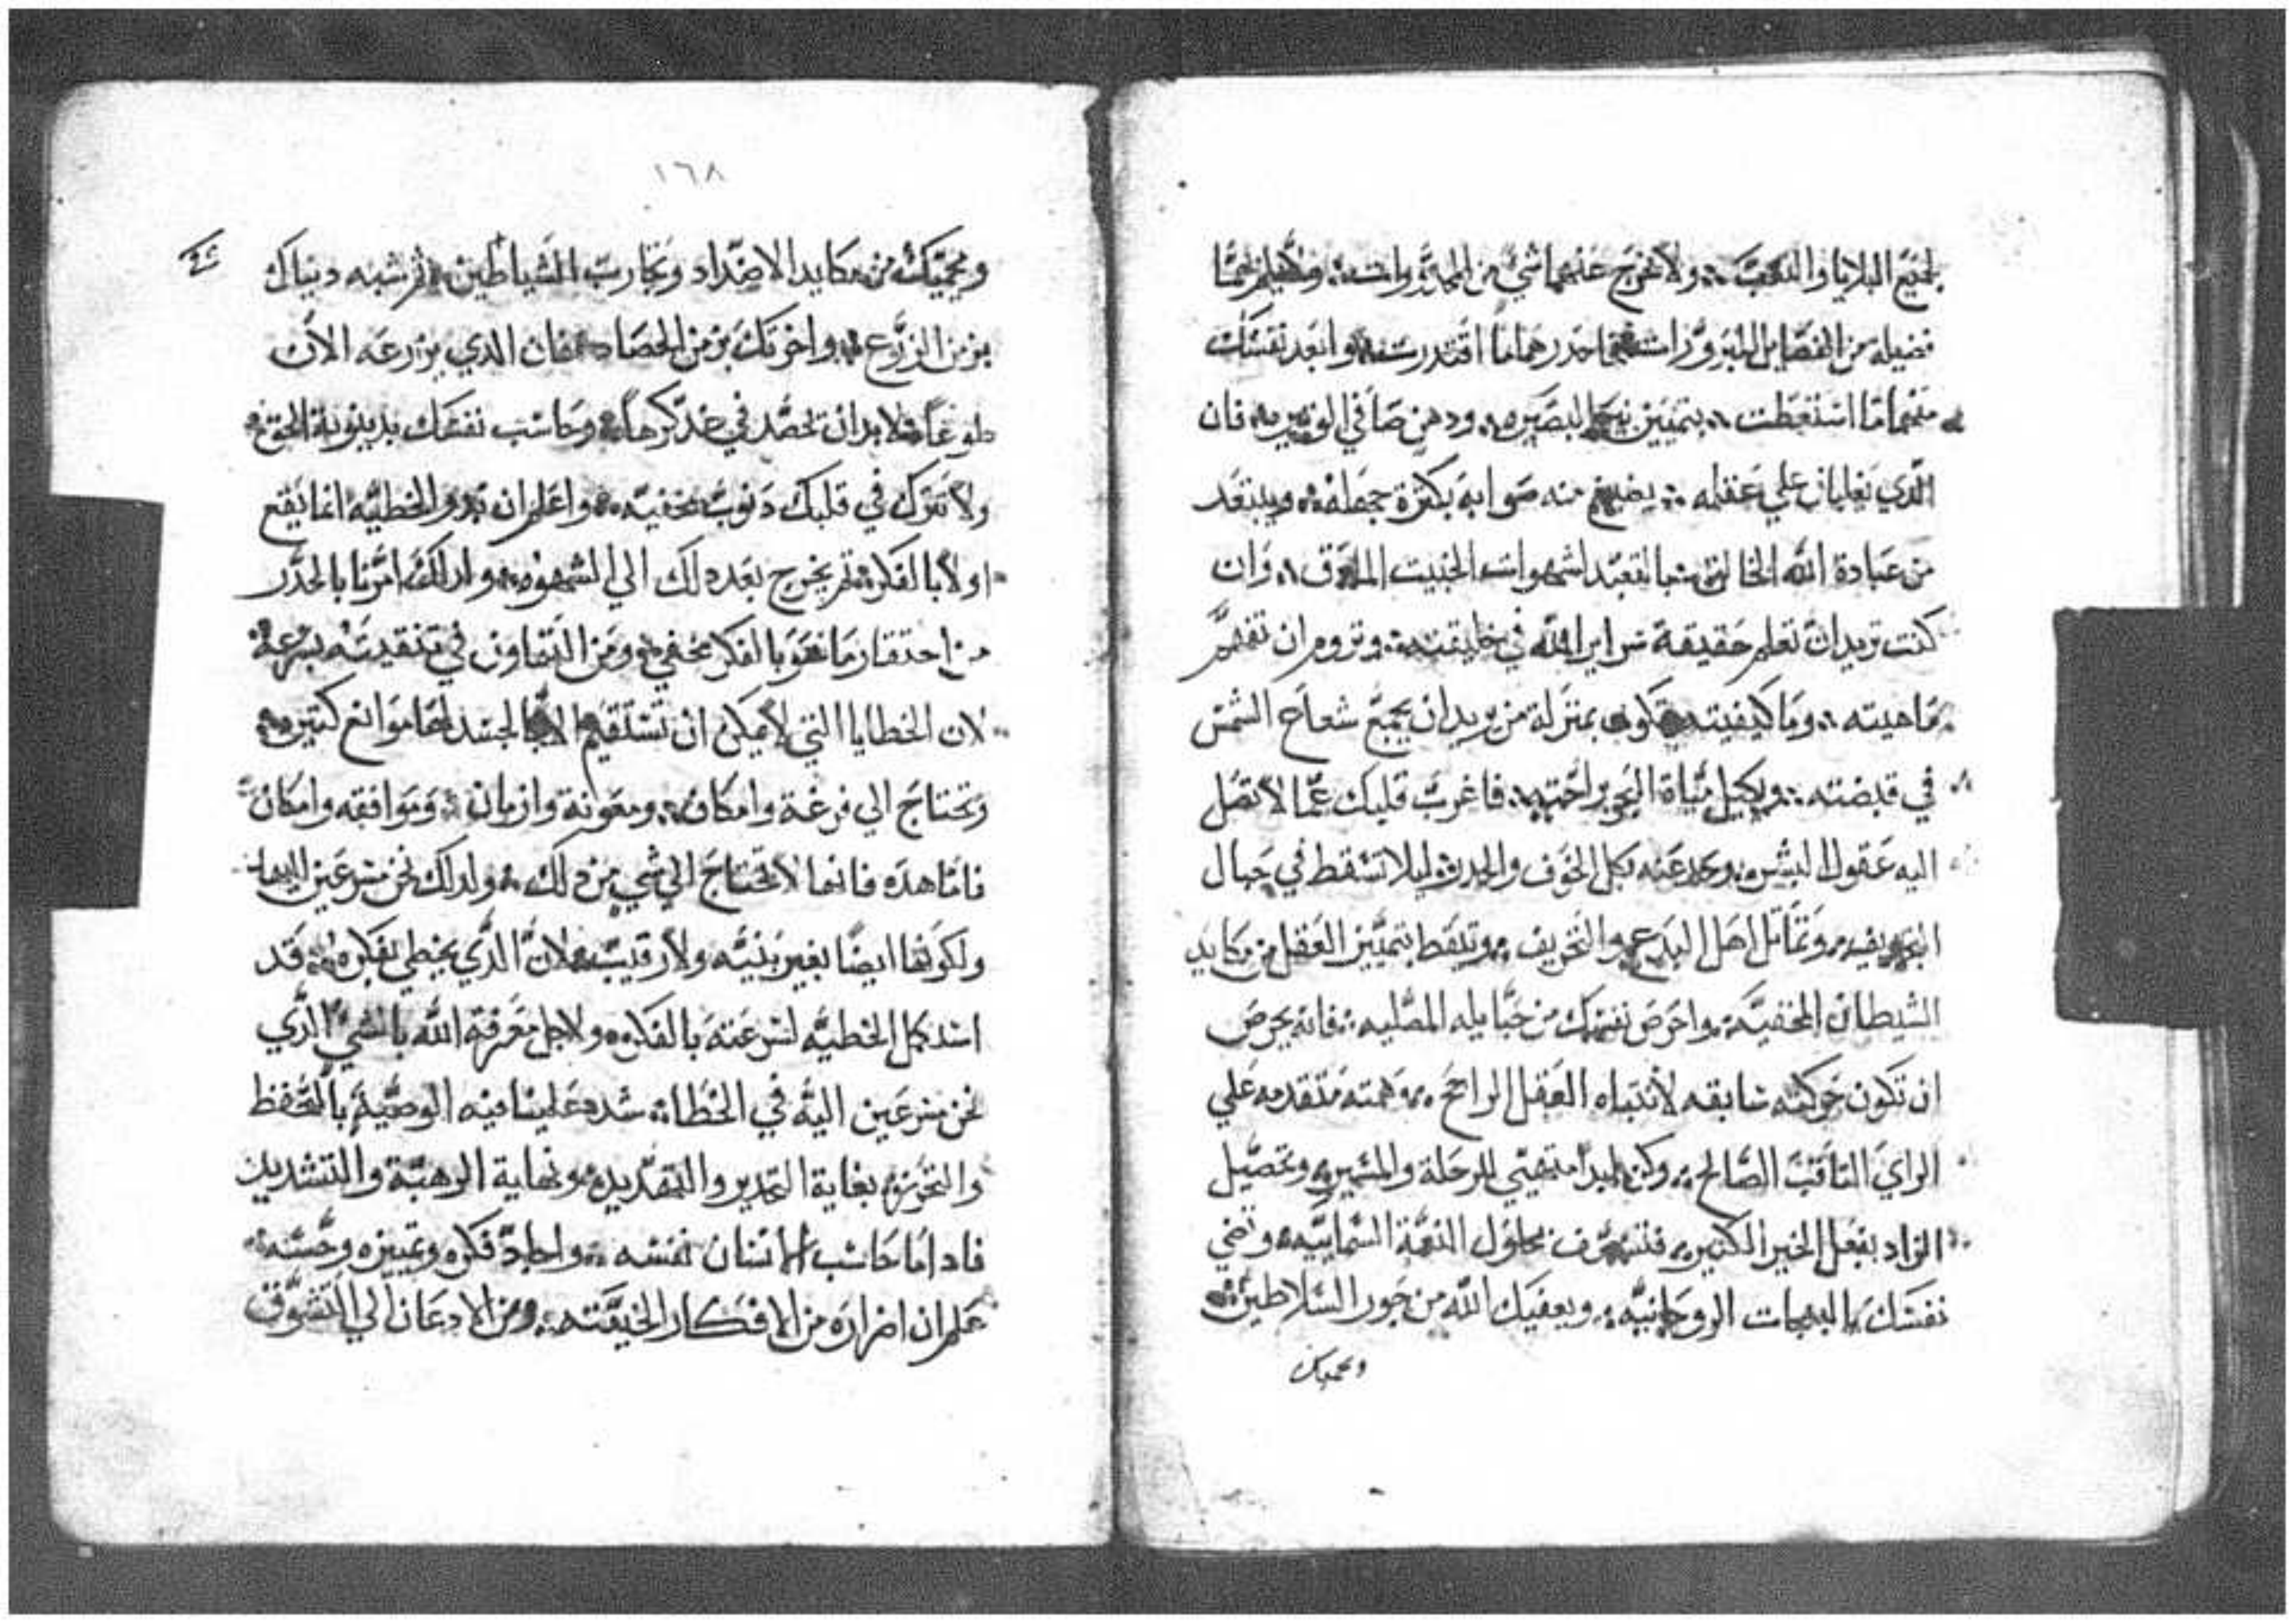 لجميع البلايا والنكبة ولا تخرج عنهما شي من المحذورات
فضيله من الفضايل المبرورات فاحدرهما ما اقتدرت وابعد نفسك
منهما ما استنعطت بتمييز البصيره ودهن صافي الوتيره فان
الدي يغلبان علي عقله يضيع منه صوابه بكترة جهله ويبتعد
من عبادة الله الخالق بالتعبد لشهوات الخبيت المارق وان
كنت تريد ان تعلم حقيقة سراير الله في خليقته وتروم ان تفهم
ماهيته وما كيفيته تكون بمنزلة من يريد ان يجمع شعاع الشمس
في قبضته ويكيل مياة البحور براحته فاغرب قلبك عما لا تصل
اليه عقول البشر وحد عنه بكل الخوف والحدر ليلا تسقط في حبال
التجويف وتماتل اهل البدع والتحريف وتيقظ بتمييز العقل من مكايد
الشيطان المخفيه واحرص نفسك من حبايله المصليه فانه يحرص
ان تكون حركته سابقه لانتباه العقل الراجح وهمته متقدمه علي
الراي التاقب الصالح وكن ابدا متهيي للرحلة والمسير وتحصيل
الزاد بفعل الخير الكتير فتشرف بحلول النعمة السماييه وتضي
نفسك بالبهجات الروحانيه ويعفيك الله من جور السلاطين
ويحميك
١٦٨
ويحميك من مكايد الاضداد وتجارب الشياطين تم شبه دنياك
بزمن الزرع واخرتك بزمن الحصاد فان الدي يزرعه الان
طوعا لا بد ان تحصد في غد كرها وحاسب نفسك بدينونة الحق
ولا تترك في قلبك دنوب مخفيه واعلم ان بدو الخطيه انما يقع
اولا بالفكر تم يخرج بعد دلك الي الشهوه ولدلك امرنا بالحدر
من احتقار ما نهو بالفكر مخفي ومن التهاون في تنقيته بسرعة
لان الخطايا التي لا يمكن ان تستقيم الا بالجسد لها موانع كتيره
وتحتاج الي فرغة وامكان ومعونة وازمان وموافقه وامكان
فاما هده فانها لا تحتاج الي شي من دلك ولدلك نحن مسرعين اليها
ولكونها ايضا بغير بنيه ولا رقيب لان الدي يخطي بفكره قد
استكمل الخطيه لسرعته بالفكر ولاجل معرفة الله بالشي الدي
نحن مسرعين اليه في الخطا شدد علينا فيه الوصيه بالتحفظ
والتحرز بغاية التحدير والتهديد ونهاية الرهبة والتشديد
فادا ما حاسب الانسان نفسه واجاد فكره وتمييزه وحسه
علم ان اضراره من الافكار الخفيته ومن الادعان الي التشوق